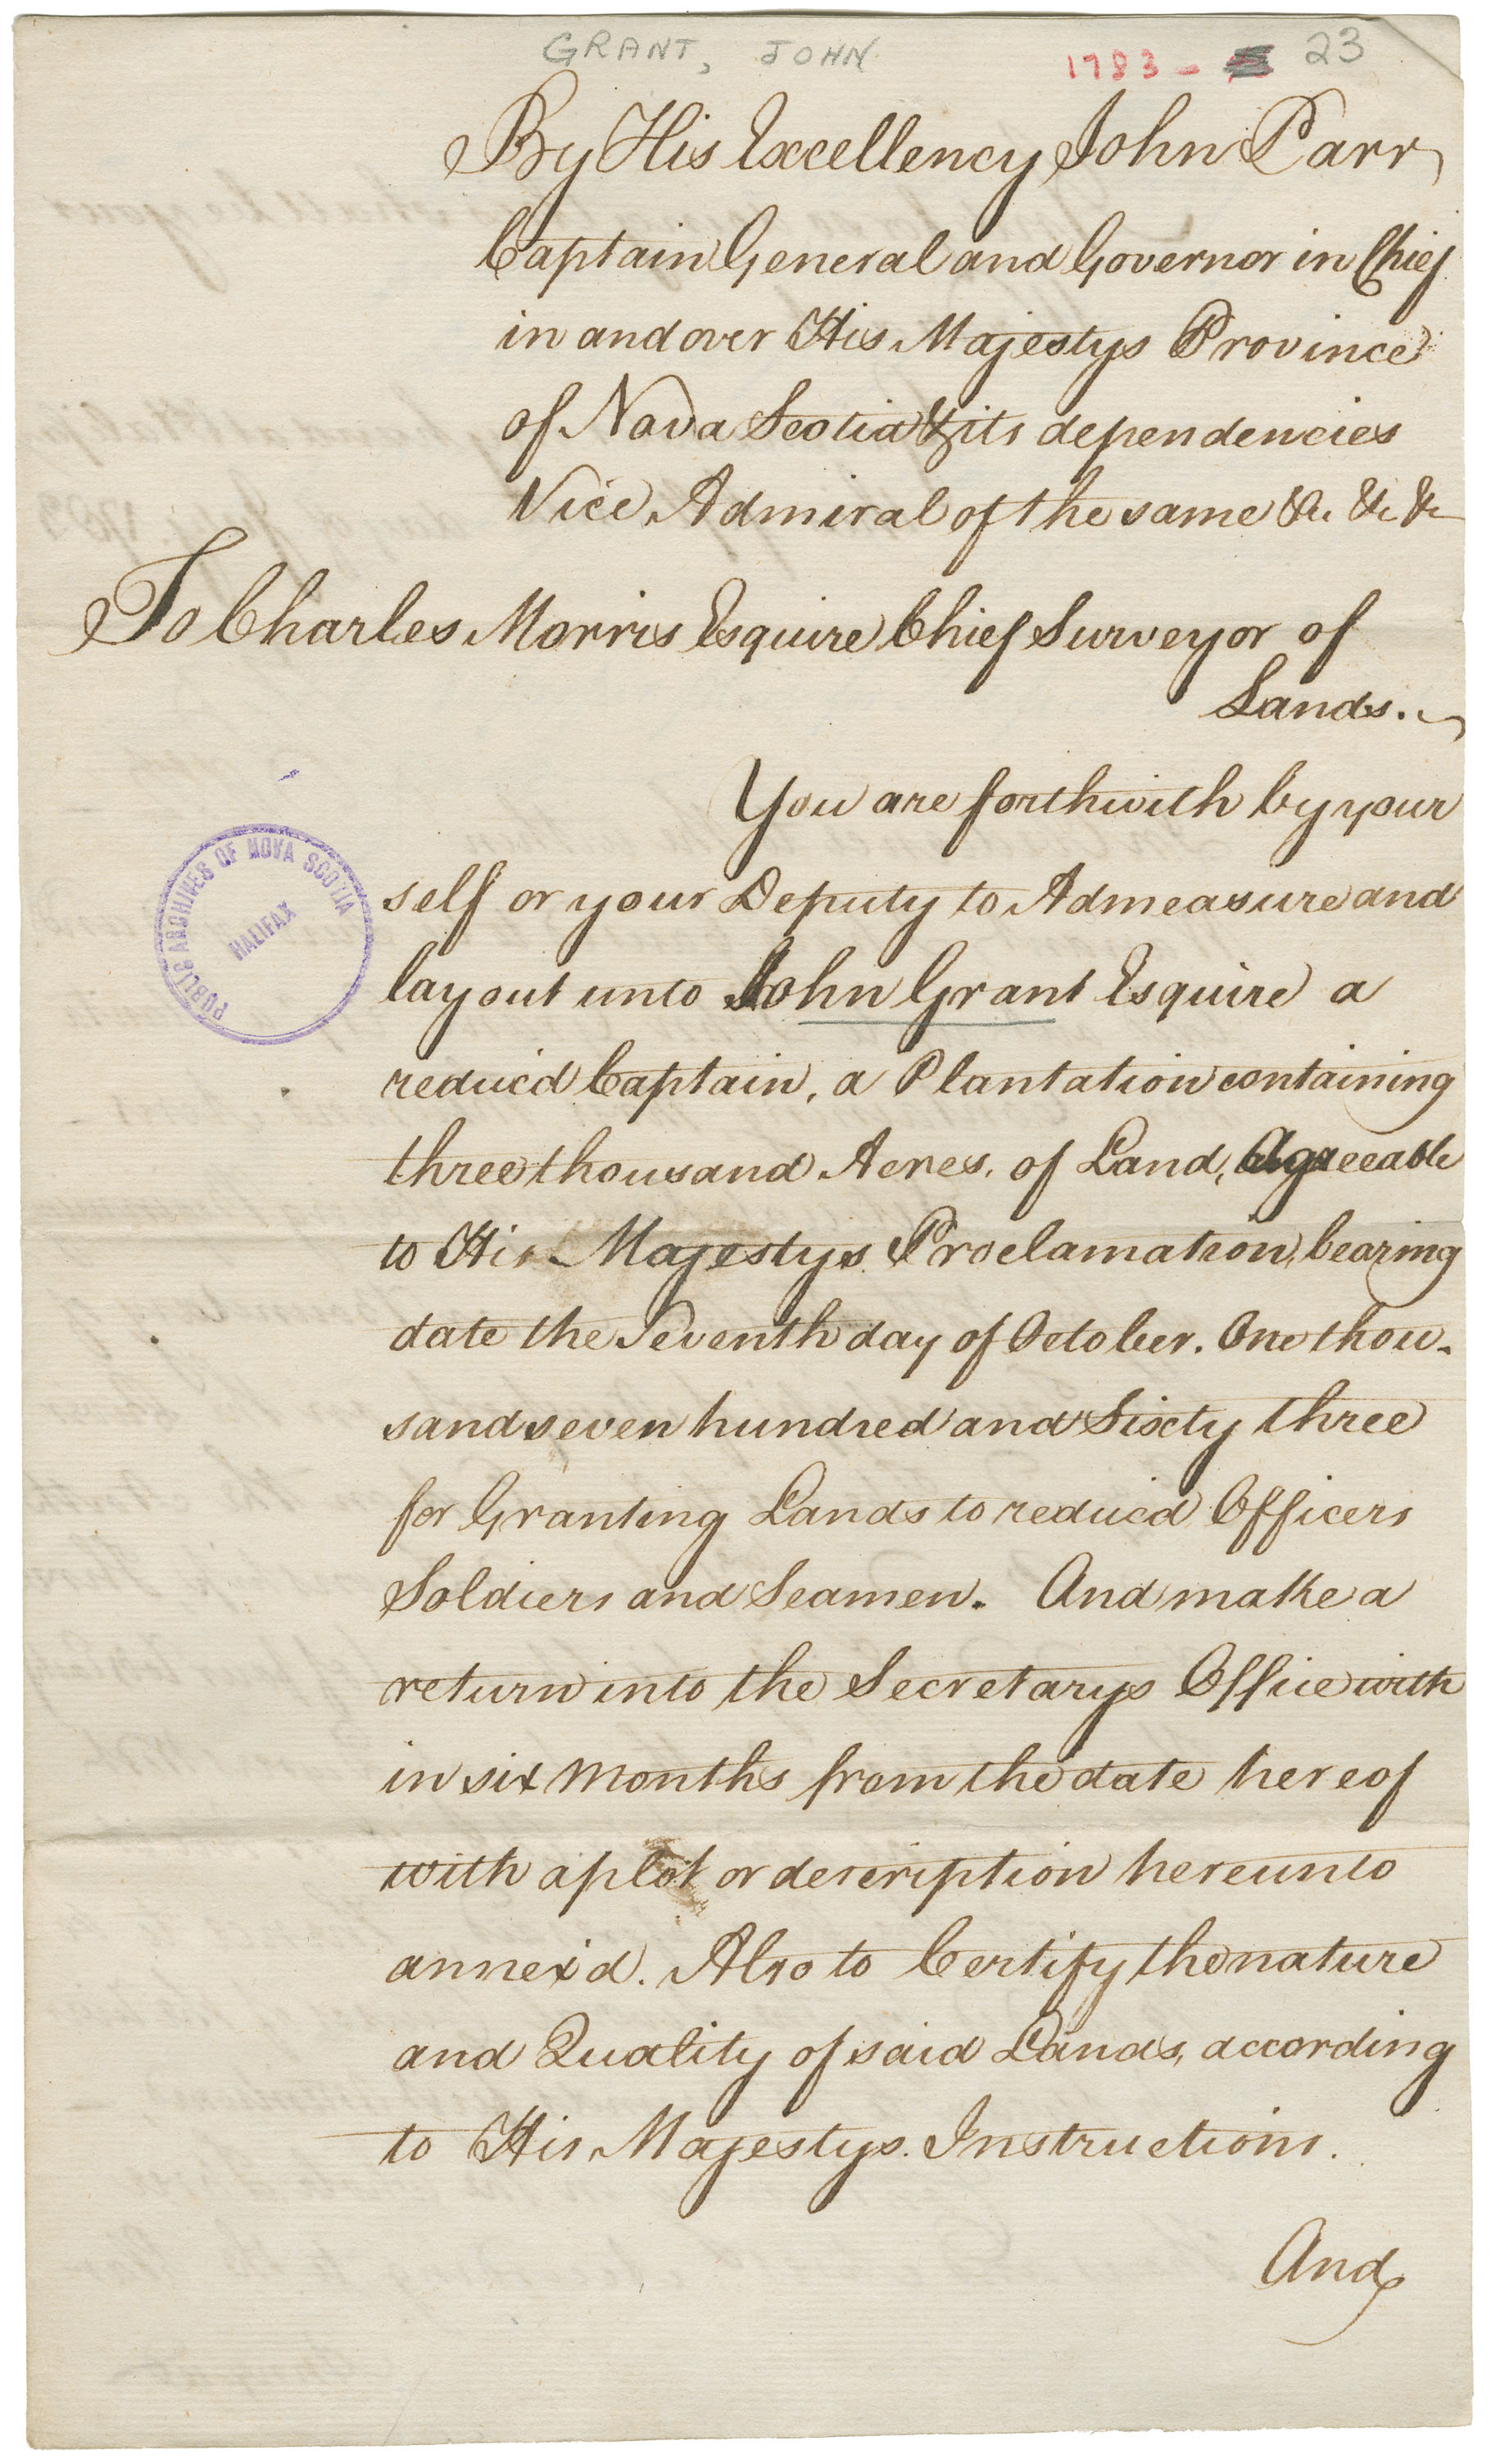 GRANT, JOHN
1783 - 23
By His Excellency John Parr
Captain General and Governor in Chief
in and over His Majestys Province
of Nova Scotia & its dependencies
Vice Admiral of the same &c. &c &c
To Charles Morris Esquire Chief Surveyor of
Lands.
You are forthwith by your
self or your Deputy to Admeasure and
lay out unto John Grant Esquire a
reduc'd Captain, a Plantation containing
three thousand Acres, of Land, Agreeable
to His Majestys Proclamation, bearing
date the Seventh day of October. One thou-
sand seven hundred and Sixty three
for Granting Lands to reduc'd Officers
Soldiers and Seamen. And make a
return into the Secretarys Office with
in six Months from the date hereof
with a plot or description hereunto
annex'd. Also to Certify the nature
and Quality of said Lands, according
to His Majestys Instructions.
And
PUBLIC ARCHIVES OF NOVA SCOTIA
HALIFAX